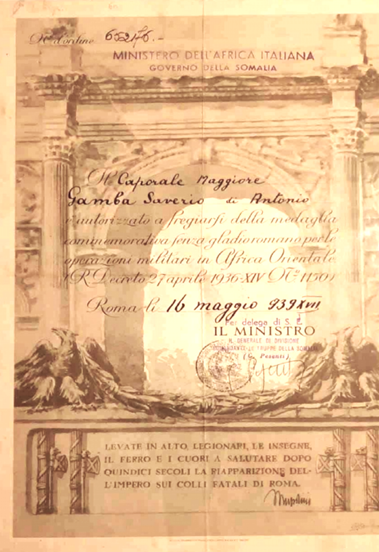 N. d'ordine 65276.-
MINISTERO DELL'AFRICA ITALIANA
GOVERNO DELLA SOMALIA
Il Caporale Maggiore
Gamba Saverio di Antonio
è autorizzato a fregiarsi della medaglia
commemorativa senza gladio romano per le
operazioni militari in Africa Orientale
(R. Decreto 27 aprile 1936-XIV N° 1150)
Roma li 16 maggio 939 XVII
Per delega di S. E.
IL MINISTRO
IL GENERALE DI DIVISIONE
COMANDANTE LE TRUPPE DELLA SOMALIA
LEVATE IN ALTO, LEGIONARI, LE INSEGNE,
IL FERRO E I CUORI A SALUTARE DOPO
QUINDICI SECOLI LA RIAPPARIZIONE DEL-
L'IMPERO SUI COLLI FATALI DI ROMA.
Mussolini